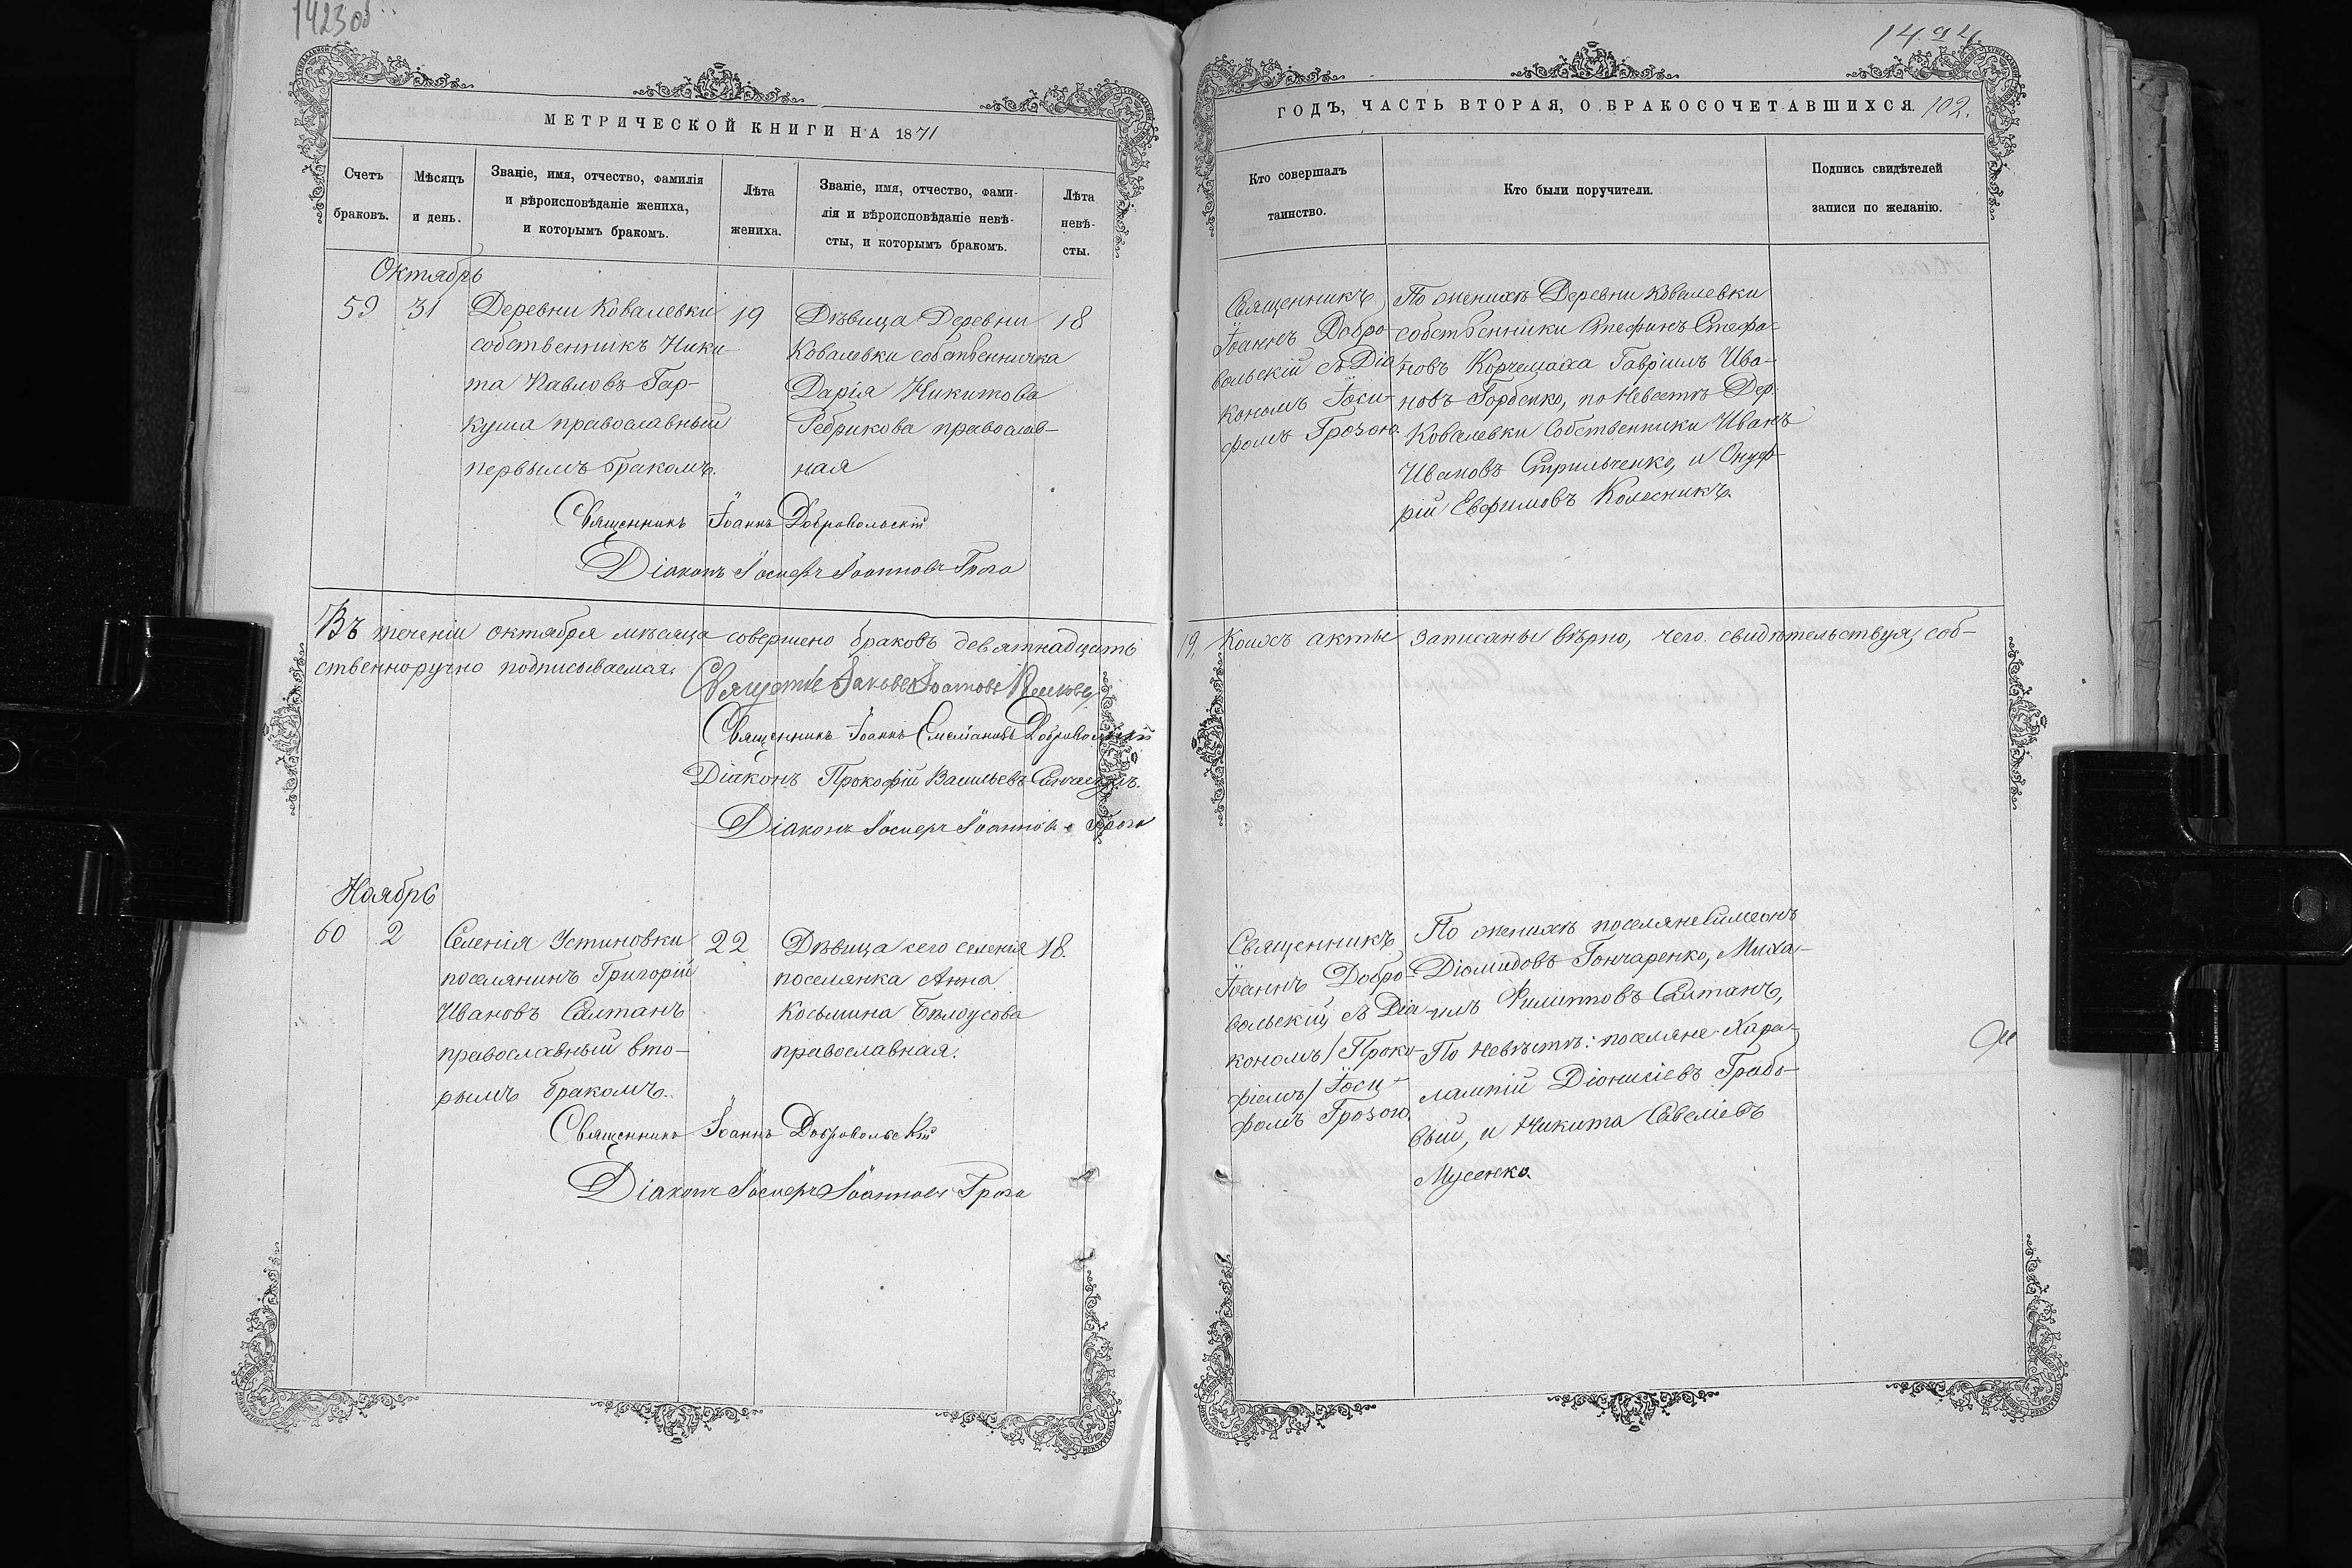 1423об
МЕТРИЧЕСКОЙ КНИГИ НА 1871
Счетъ браковъ.
Мѣсяцъ и день.
Званіе, имя, отчество, фамилія
и вѣроисповѣданіе жениха,
и которымъ бракомъ.
Лѣта жениха.
Званіе, имя, отчество, фами-
лія и вѣроисповѣданіе невѣ-
сты, и которымъ бракомъ.
Лѣта
невѣ-
сты.
Октябрь
59
31
Деревни Ковалевки
собственникъ Ники-
та Павловъ Гар-
куша православный
первымъ бракомъ.
19
Дѣвица Деревни
Ковалевки собственничка
Дарія Никитова
Ребрикова православ-
ная
18
Священникъ Іоаннъ Добровольскій
Діаконъ Іосифъ Іоанновъ Гроза
Въ теченіи октября мѣсяца совершено браковъ девятнадцать
ственноручно подписываемся.
Священникъ Іаковъ Іоанновъ
Священникъ Іоаннъ Емеліановъ Добровольскій
Діаконъ Прокофій Васильевъ
Діаконъ Іосифъ Іоанновъ Гроза
Ноябрь
60
2
Селенія Устиновки
поселянинъ Григорій
Ивановъ Салтанъ
православный вто-
рымъ бракомъ.
22
Дѣвица сего селенія
поселянка Анна
Косьмина Бѣлоусова
православная.
18.
Священникъ Іоаннъ Добровольскій
Діаконъ Іосифъ Іоанновъ Гроза
1424
ГОДЪ, ЧАСТЬ ВТОРАЯ, О БРАКОСОЧЕТАВШИХСЯ. 102.
Кто совершалъ
таинство.
Кто были поручители.
Подпись свидѣтелей
записи по желанію.
Священникъ
Іоаннъ Добро-
вольскій съ Діа
кономъ Іоси-
фомъ Грозою.
По женихѣ Деревни Ковалевки
собственники Стефанъ Стефа-
новъ Корчемаха Гавріилъ Ива-
новъ Горбенко, по Невестѣ Дер.
Ковалевки Собственники Иванъ
Ивановъ Стрильченко, и Онуф-
рій Евфимовъ Колесникъ.
19. Коихъ акты записаны вѣрно, чего свидѣтельствуя, соб-
Священникъ
Іоаннъ Добро-
вольскій съ Діа
кономъ/Проко-
фіемъ/Іоси-
фомъ Грозою.
По женихѣ поселяне Симеонъ
Діомидовъ Гончаренко, Миха-
илъ Филипповъ Салтанъ,
По Невѣстѣ: поселяне Хара-
лампій Діонисіевъ Грабо-
вый, и Никита Савеліевъ
Мусенко.